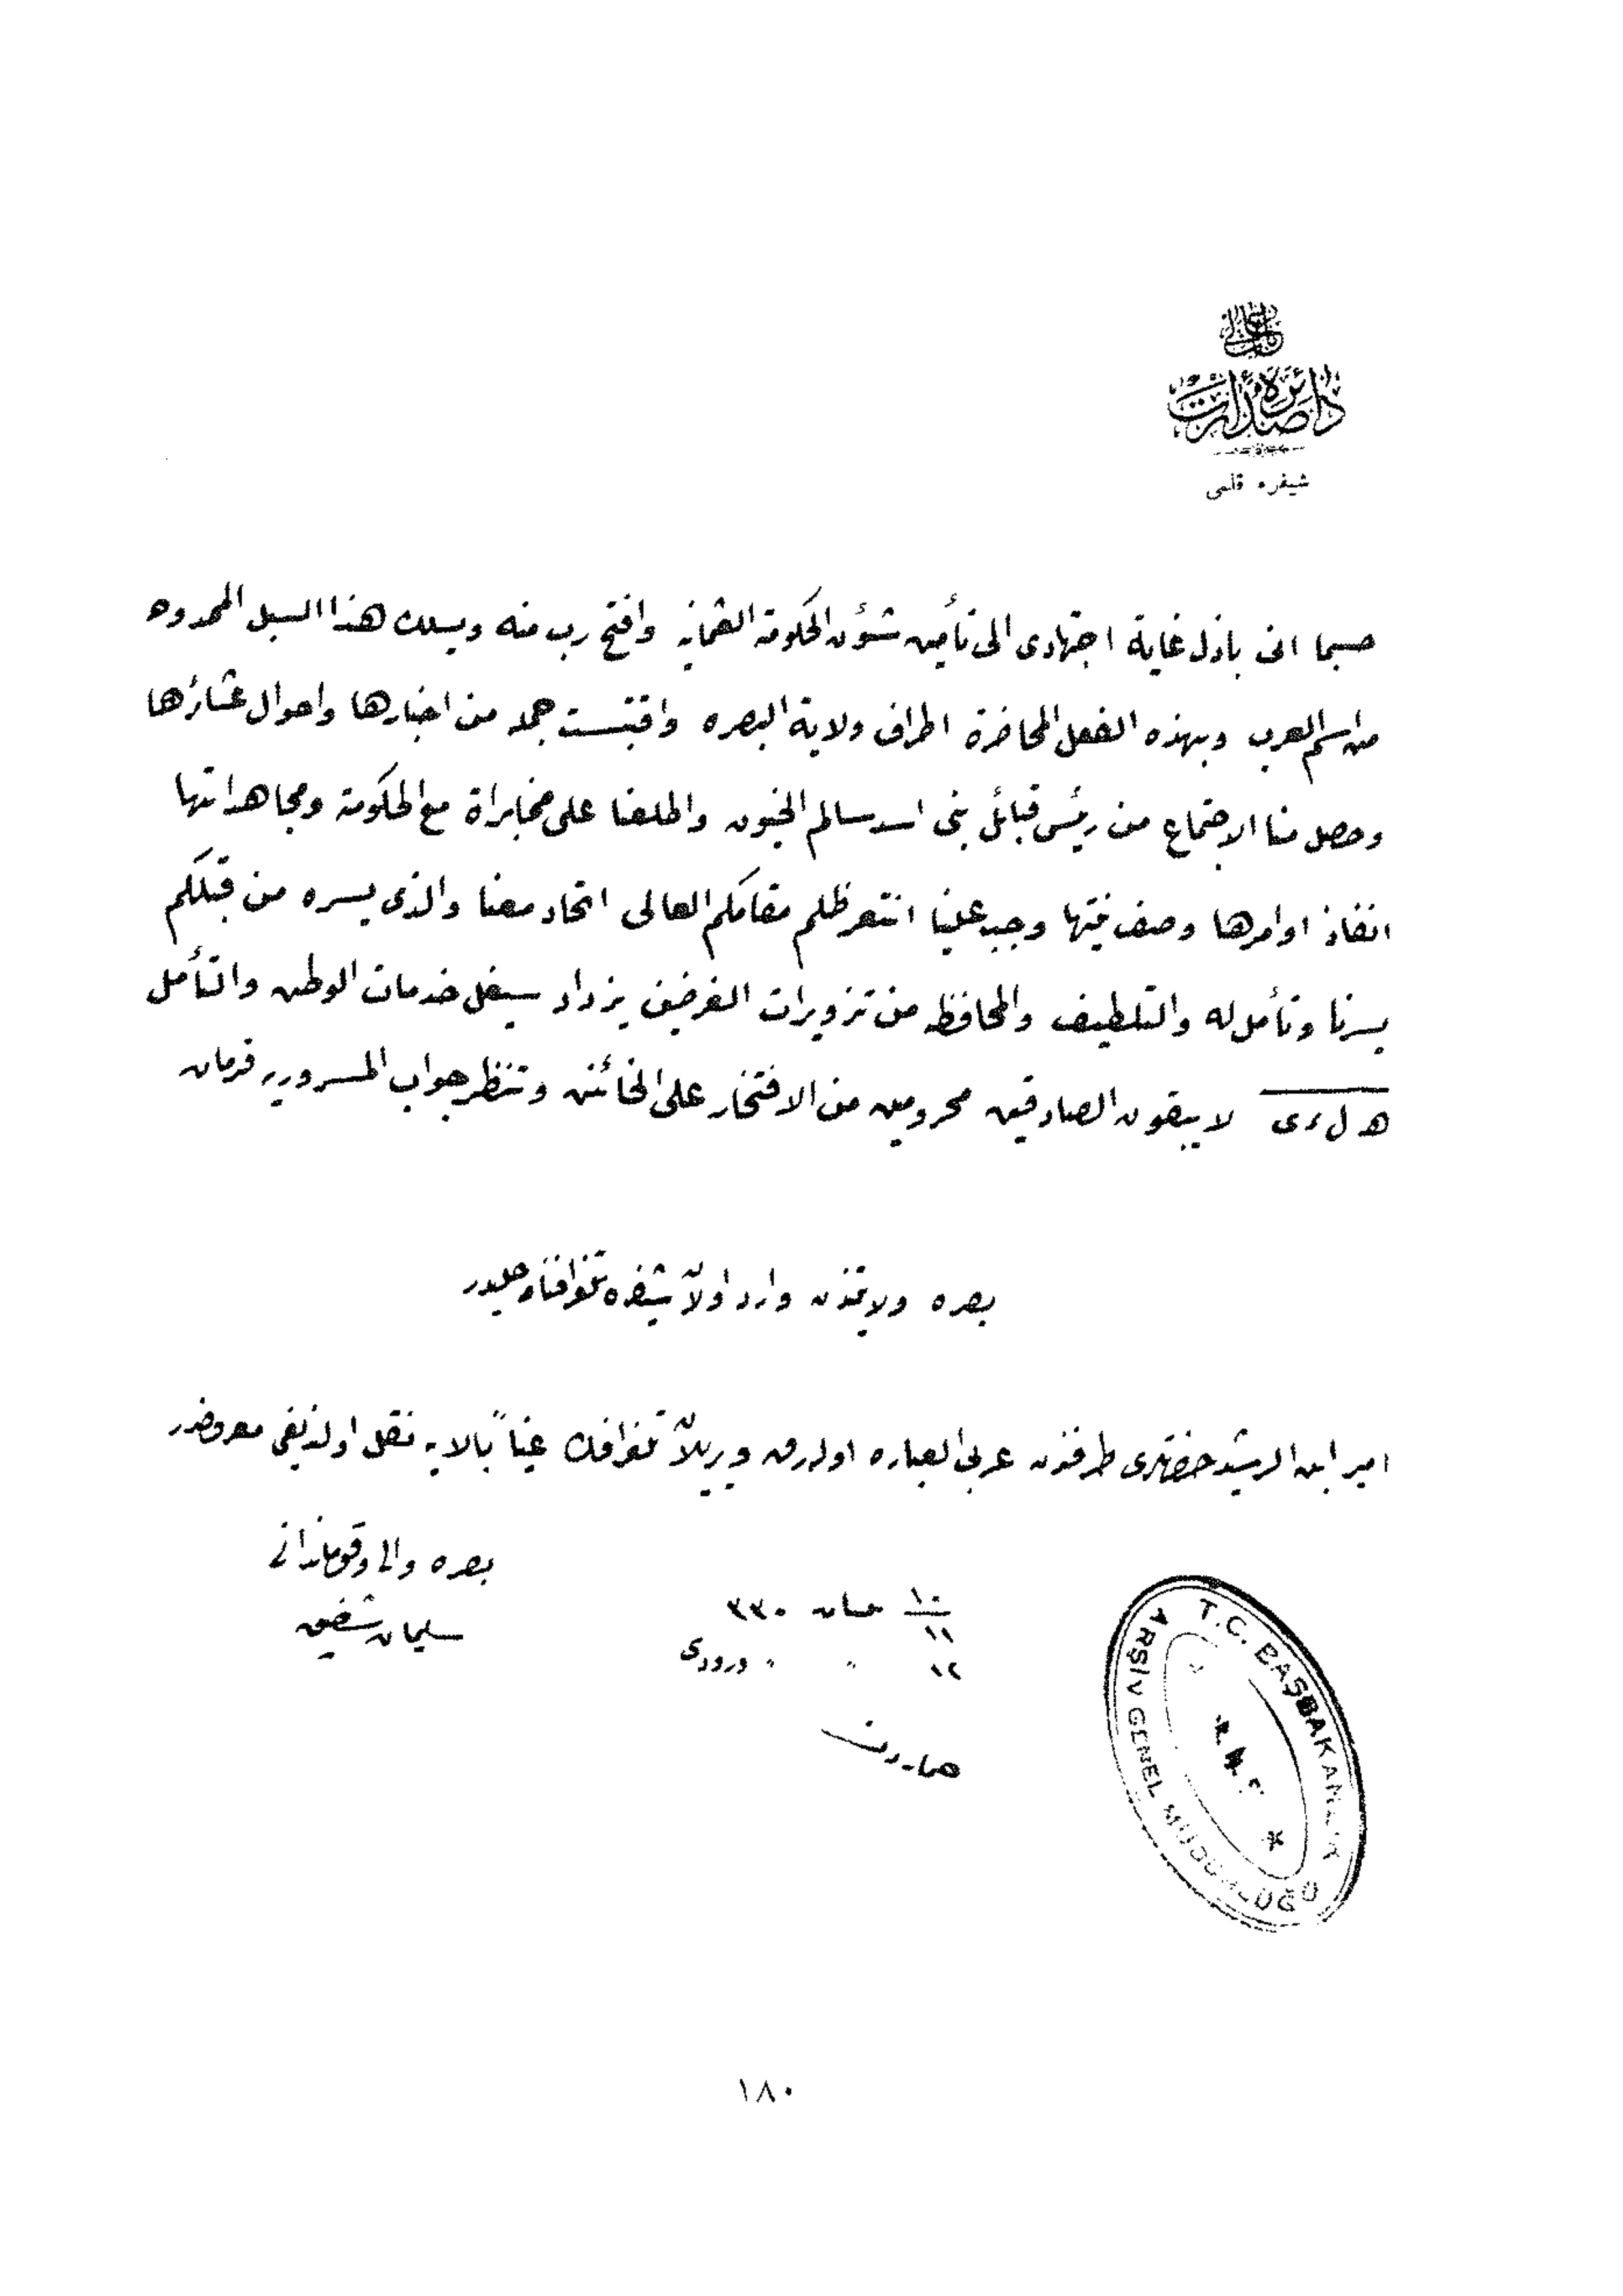 باب عالی
دائرهٔ صدارت
شیفره قلمی
حسبما انی باذل غایة اجتهادی الی تأمین شؤن الحکومة العثمانیه وافتح رب منه ویسلك هذا السبیل المحدوه
من اسم العرب وبهذه الفعل المحاضرة اطراف ولایة البصره واقتبست جمله من اخبارها واحوال عشائرها
وحصل منا الاجتماع من رئیس قبائل بنی اسد سالم الخیون واطلعنا علی مخابراة مع الحکومة ومجاهداتها
انفاذ اوامرها وصف نیتها وجب علینا مقامکم العالی اتحاد معنا والذی یسره من قبلکم
یسرنا وتأمل له والتلطیف والمحافظ من تزویرات الغرضین یزداد سیفعل خدمات الوطن والتأمل
لا یبقون الصادقین محرومین من الافتخار علی الخائنن وتنظر جواب المسروریه فرمان
بصره ولایتندن وارد اولان شیفره تلغرافنامه حلیدر
امیر ابن الرشید حضرتلری طرفندن عربی العباره اوله رق ویریلان تلغرافك عیناً بالایه نقل اولندیغی معروضدر
بصره والی وقومندانی
سلیمان شفیق
١٠ نیسان ٣٣٠
١١
١٢ " " ورودی
صدارت
T.C. BAŞBAKANLIK
ARŞİV GENEL MÜDÜRLÜĞÜ
١٨٠